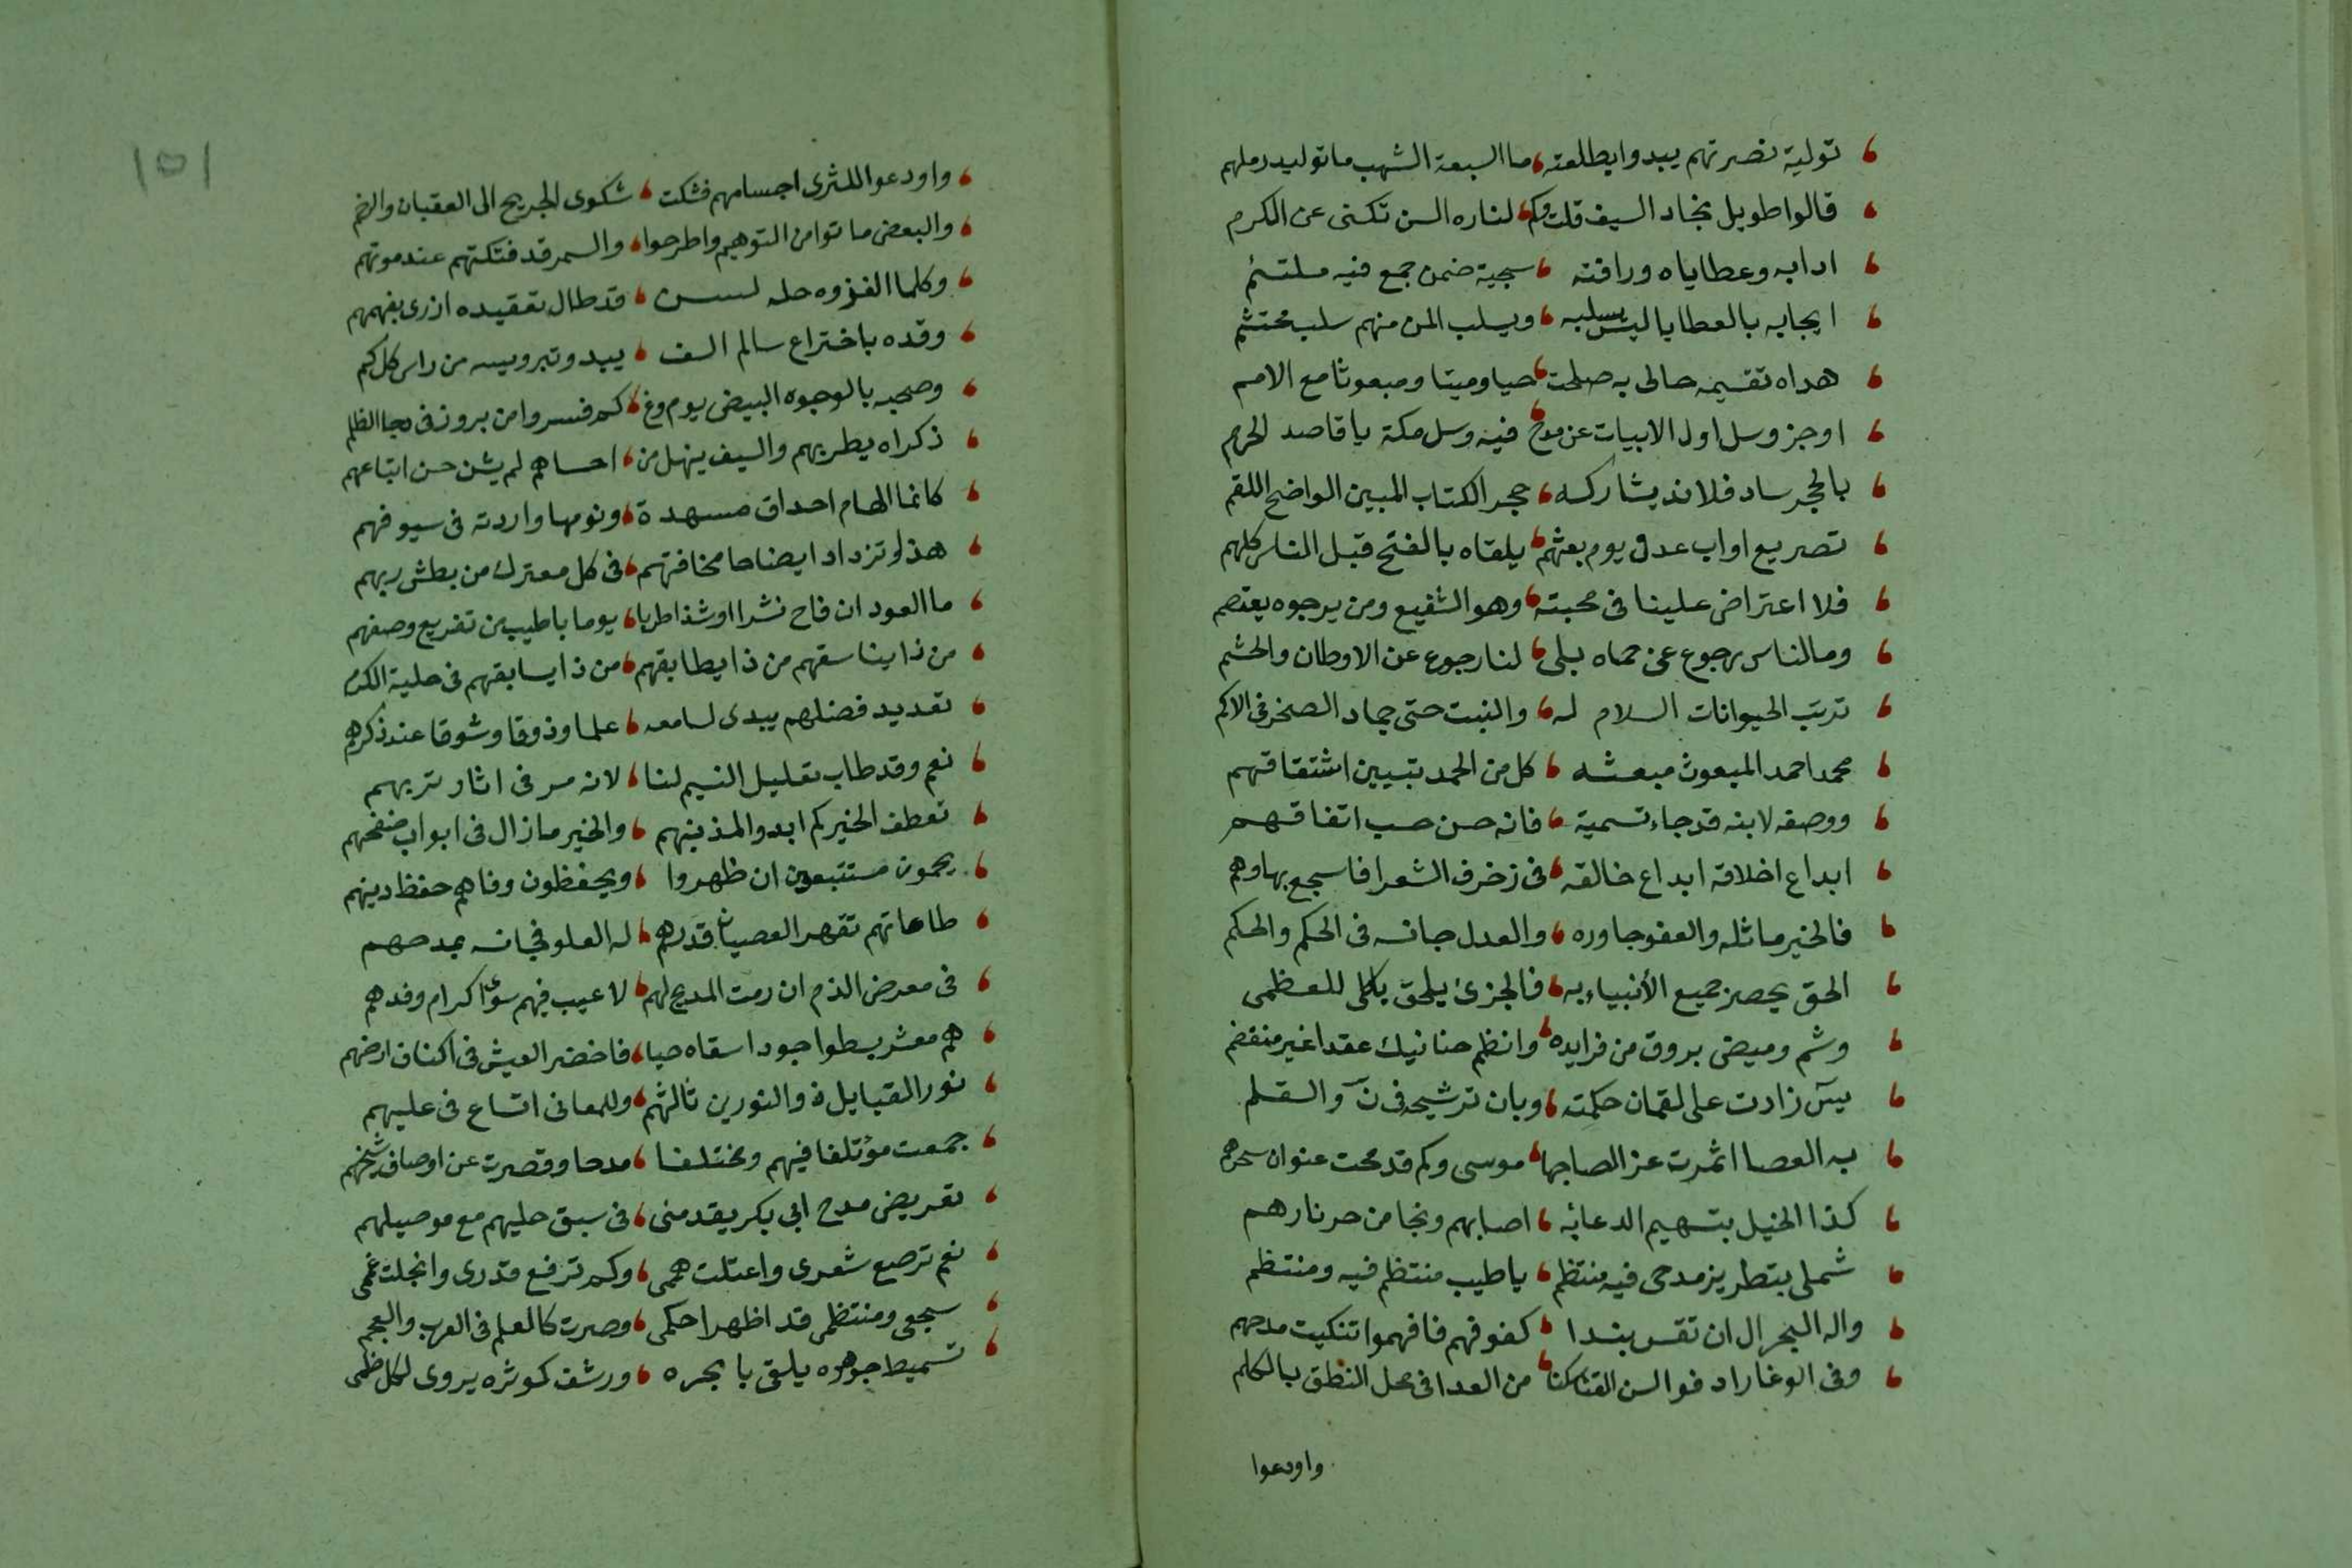 تولية نصرتهم يبدوا بطلعته ، ما السبعة الشهب ما توليد رملهم
قالوا طويل نجاد السيف قلت وكم ، لناره السن تكنى عن الكرم
ادابه وعطاياه ورافته ، سجية ضمن جمع فيه ملتئم
ايجابه بالعطايا ليس يسلبه ، ويسلب المن منهم سلب محتشم
هداه تقسيمه حالى به صلحت ، حيا وميتا ومبعوثا مع الامم
اوجز وسل اول الابيات عن مدح ، فيه وسل مكة يا قاصد الحرم
بالحجر ساد فلا ند يشاركه ، حجر الكتاب المبين الواضح اللقم
تصريع ابواب عدن يوم بعثهم ، يلقاه بالفتح قبل الناس كلهم
فلا اعتراض علينا فى محبته ، وهو الشفيع ومن يرجوه يعتصم
وما لناس رجوع عن حماه بلى ، لنا رجوع عن الاوطان والحشم
ترتب الحيوانات السلام له ، والنبت حتى جماد الصخر فى الاكم
محمد احمد المبعوث مبعثه ، كل من الحمد تبيين اشتقاقهم
ووصفه لابنه قد جاء تسمية ، فانه حسن حسب اتفاقهم
ابداع اخلاقه ابداع خالقه ، فى زخرف الشعرا فاسجع بها وهم
فالخير ماثله والعفو جاوره ، والعدل جانسه فى الحكم والحكم
الحق يحصر جميع الأنبياء به ، فالجزئ يلحق بالكلى للعظمى
وشم وميض بروق من فرايده ، وانظم حنانيك عقدا غير منفصم
يسٓ زادت على لقمان حكمته ، وبان ترشيحه فى نٓ والقلم
به العصا اثمرت عز الصاحبها ، موسى وكم قد محت عنوان سحرهم
كذا الخليل بتسهيم الدعا به ، اصابهم ونجا من حر نارهم
شملى بتطريز مدحى فيه منتظم ، يا طيب منتظم فيه ومنتظم
واله البحر ال ان تقس بندا ، كفوفهم فافهموا تنكيت مدحهم
وفى الوغا رادفوا السن القنا سكنا ، من العدا فى محل النطق بالكلم
واودعوا
١٥١
واودعوا للثرى اجسامهم فشكت ، شكوى الجريح الى العقبان والرخم
والبعض ماتوا من التوهيم واطرحوا ، والسمر قد فتكتهم عند موتهم
وكلما الغزوه حله لسن ، قد طال تعقيده ازرى بفهمهم
وقده باختراع سالم الف ، يبدو تبرويسه من راس كل كم
وصحبه بالوجوه البيض يوم وغ ، كم فسروا من بروز فى دجا الظلم
ذكراه يطربهم والسيف ينهل من ، احساهم لم يشن حسن اتباعهم
كانما الهام احداق مسهدة ، ونومها واردته فى سيوفهم
هذا وتزداد ايضاحا مخافتهم ، فى كل معترك من بطش ربهم
ما العود ان فاح نشرا او شذا طربا ، يوما باطيب من تفريع وصفهم
من ذا يناسقهم من ذا يطابقهم ، من ذا يسابقهم فى حلبة الكرم
تعديد فضلهم يبدى لسامعه ، علما وذوقا وشوقا عند ذكرهم
نعم وقد طاب تعليل النسيم لنا ، لانه مر فى اثار تربهم
تعطف الخير كم ابدوا لمذنبهم ، والخير ما زال فى ابواب صفحهم
يحمون مستتبعين ان ظهروا ، ويحفظون وفاهم حفظ دينهم
طاعاتهم تقهر العصيان قدرهم ، له العلو فجانسه بمدحهم
فى معرض الذم ان رمت المديح لهم ، لا عيب فيهم سوى اكرام وفدهم
هم معشر بسطوا جودا سقاه حيا ، فاخضر العيش فى اكناف ارضهم
نور القبايل ذو النورين ثالثهم ، وللمعانى اتساع فى عليهم
جمعت مؤتلفا فيهم ومختلفا ، مدحا وقصرت عن اوصاف شيخهم
تعريض مدح ابى بكر يقدمنى ، فى سبق حليهم مع موصيلهم
نعم ترصع شعرى واعتلت هممى ، وكم ترفع قدرى وانجلت غممى
سجعى ومنتظمى قد اظهرا حكمى ، وصرت كالعلم فى العرب والعجم
تسميط جوهره يلقى بابحره ، ورشف كوثره يروى لكل ظمى